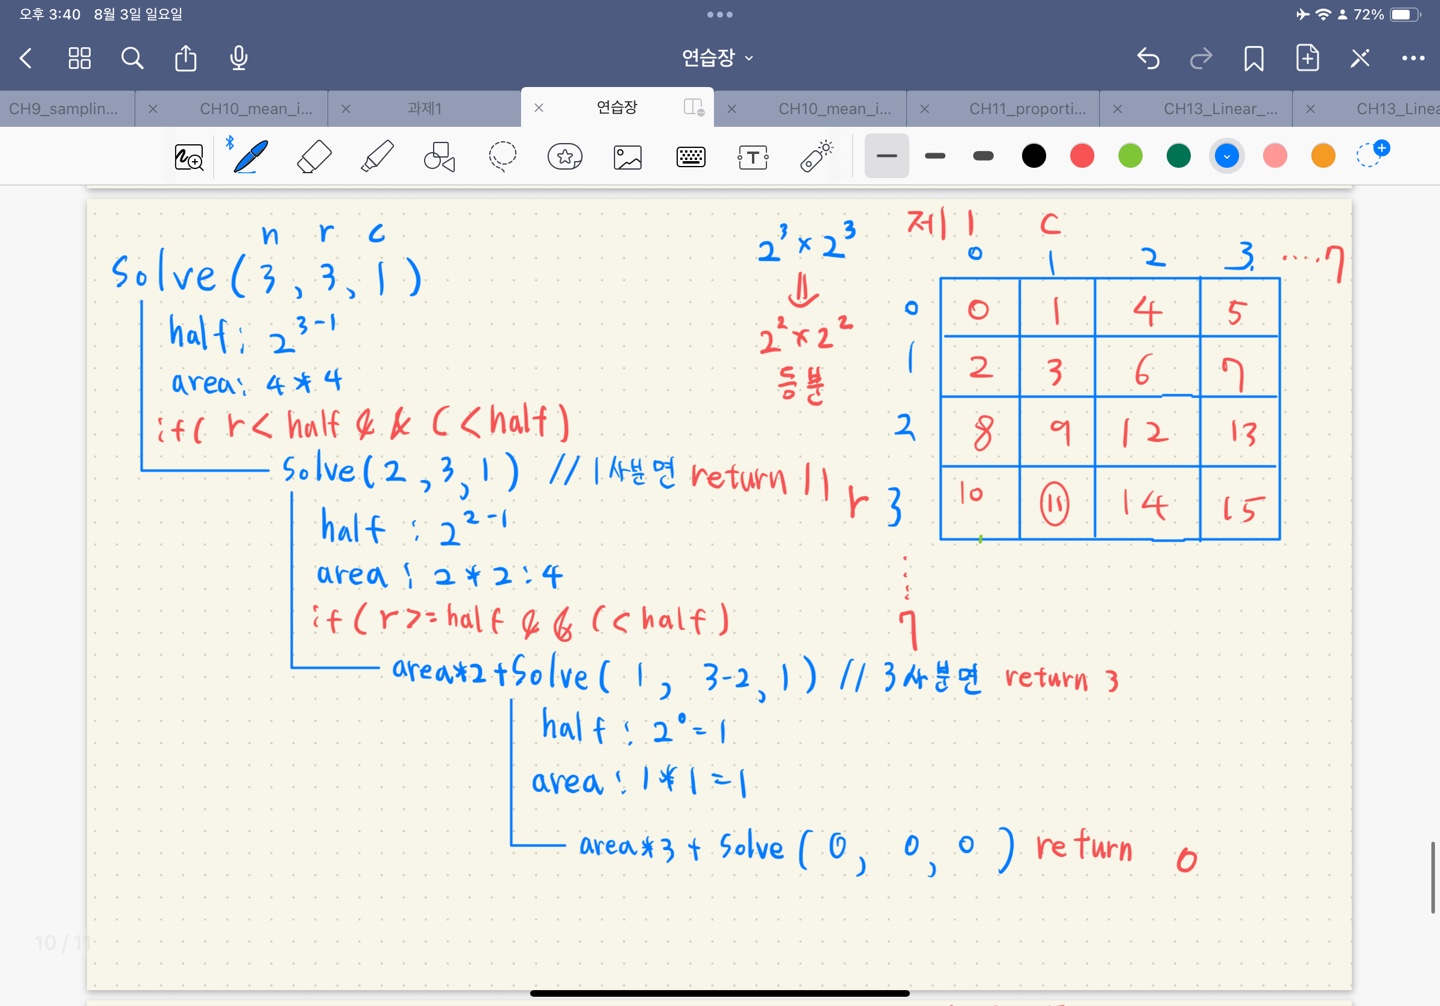 오후 3:40 8월 3일 일요일
72%
연습장
CH9_samplin...
CH10_mean_i...
과제1
연습장
CH10_mean_i...
CH11_proporti...
CH13_Linear_...
CH13_Linea
n r c
solve(3,3,1)
half: 2^3-1
area: 4*4
if( r< half && c<half)
solve(2,3,1) //1사분면 return 11
half : 2^2-1
area : 2*2:4
if(r>=half && c<half)
area*2+solve(1, 3-2,1) //3사분면 return 3
half : 2^0=1
area : 1*1=1
area*3 + solve(0, 0, 0) return 0
2^3 × 2^3
⇓
2^2 × 2^2
등분
c
0 1 2 3 ....7
0 0 1 4 5
1 2 3 6 7
2 8 9 12 13
r 3 10 ⑪ 14 15
7
10 / 11